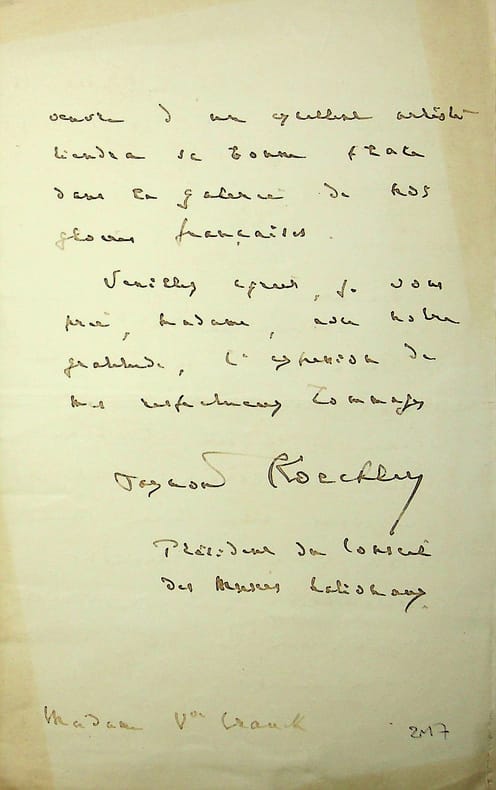 œuvre d'un excellent artiste
tiendra sa bonne place
dans la galerie de nos
gloires françaises.
Veuillez agréer, je vous
prie, Madame, avec notre
gratitude, l'expression de
mes respectueux hommages
Raymond Koechlin
Président du Conseil
des Musées Nationaux
Madame Vve Cranck
2117